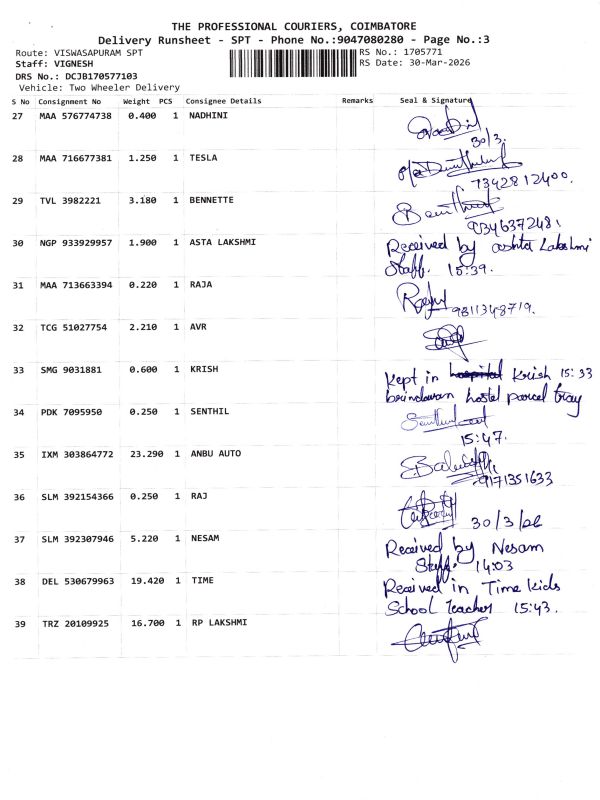 THE PROFESSIONAL COURIERS, COIMBATORE
Delivery Runsheet - SPT - Phone No.:9047080280 - Page No.:3
Route: VISWASAPURAM SPT RS No.: 1705771
Staff: VIGNESH RS Date: 30-Mar-2026
DRS No.: DCJB170577103
Vehicle: Two Wheeler Delivery
S No Consignment No Weight PCS Consignee Details Remarks Seal & Signature
27 MAA 576774738 0.400 1 NADHINI
30/3.
28 MAA 716677381 1.250 1 TESLA
7342812400.
29 TVL 3982221 3.180 1 BENNETTE
9346372481
30 NGP 933929957 1.900 1 ASTA LAKSHMI Received by ashta Lakshmi
Staff. 15:39.
31 MAA 713663394 0.220 1 RAJA
9811348719.
32 TCG 51027754 2.210 1 AVR
33 SMG 9031881 0.600 1 KRISH Kept in hospital Krish 15:33
brindavan hostel parcel tray
34 PDK 7095950 0.250 1 SENTHIL
15:47.
35 IXM 303864772 23.290 1 ANBU AUTO
9171351633
36 SLM 392154366 0.250 1 RAJ
30/3/26
37 SLM 392307946 5.220 1 NESAM Received by Nesam
Staff. 14:03
38 DEL 530679963 19.420 1 TIME Received in Time kids
School Teacher 15:43.
39 TRZ 20109925 16.700 1 RP LAKSHMI